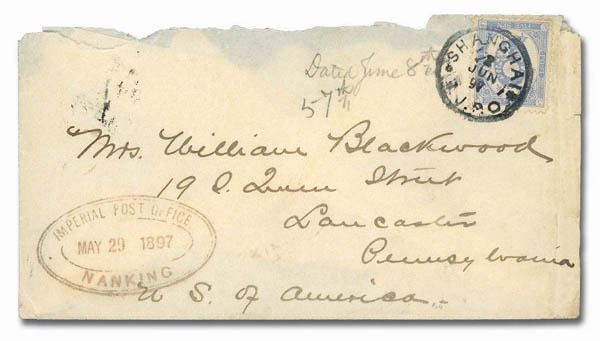 Dated June 8th
57th
SHANGHAI
JUN
I.J.P.O.
Mrs. William Blackwood
19 S. Queen Street
Lancaster
Pennsylvania
U S. of America.
IMPERIAL POST OFFICE
MAY 29 1897
NANKING